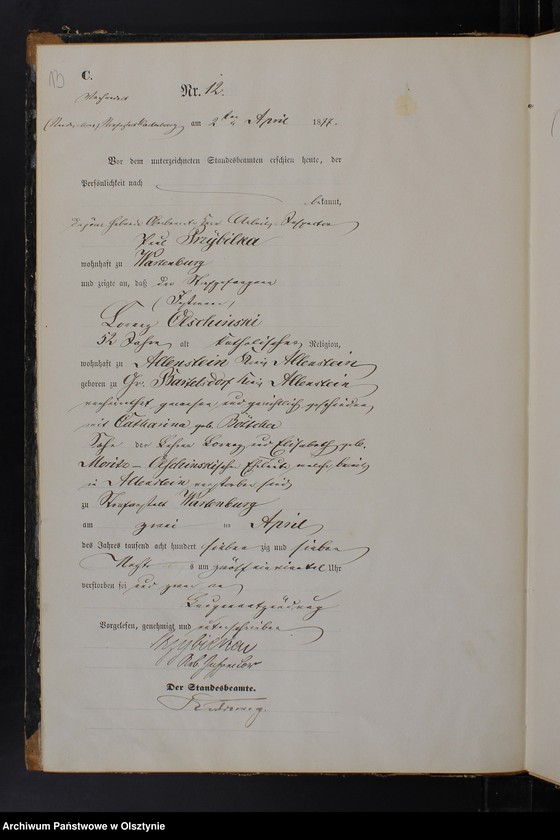 13
C.
Nr. 12.
Wartenburg
am 2ten April 1877.
Vor dem unterzeichneten Standesbeamten erschien heute, der
Persönlichkeit nach
bekannt,
Arbeits-Inspector
Paul Przybilka
wohnhaft zu Wartenburg
und zeigte an, daß der Strafgefangene
Lorenz Olschinski
52 Jahre alt katholischer Religion,
wohnhaft zu Allenstein Kreis Allenstein
geboren zu Gr. Bartelsdorf Kreis Allenstein
verheirathet gewesen und gerichtlich geschieden
mit Catharina geb.
Sohn der Lorenz und Elisabeth geb.
Moritz - Olschinskischen Eheleute welche bereits
in Allenstein verstorben sind
zu Strafanstalt Wartenburg
am zwei ten April
des Jahres tausend acht hundert sieben zig und sieben
Nachts um zwölf ein viertel Uhr
verstorben sei und zwar an
Lungenentzündung
Vorgelesen, genehmigt und unterschrieben
Przybilka
Arb. Inspector
Der Standesbeamte.
Archiwum Państwowe w Olsztynie